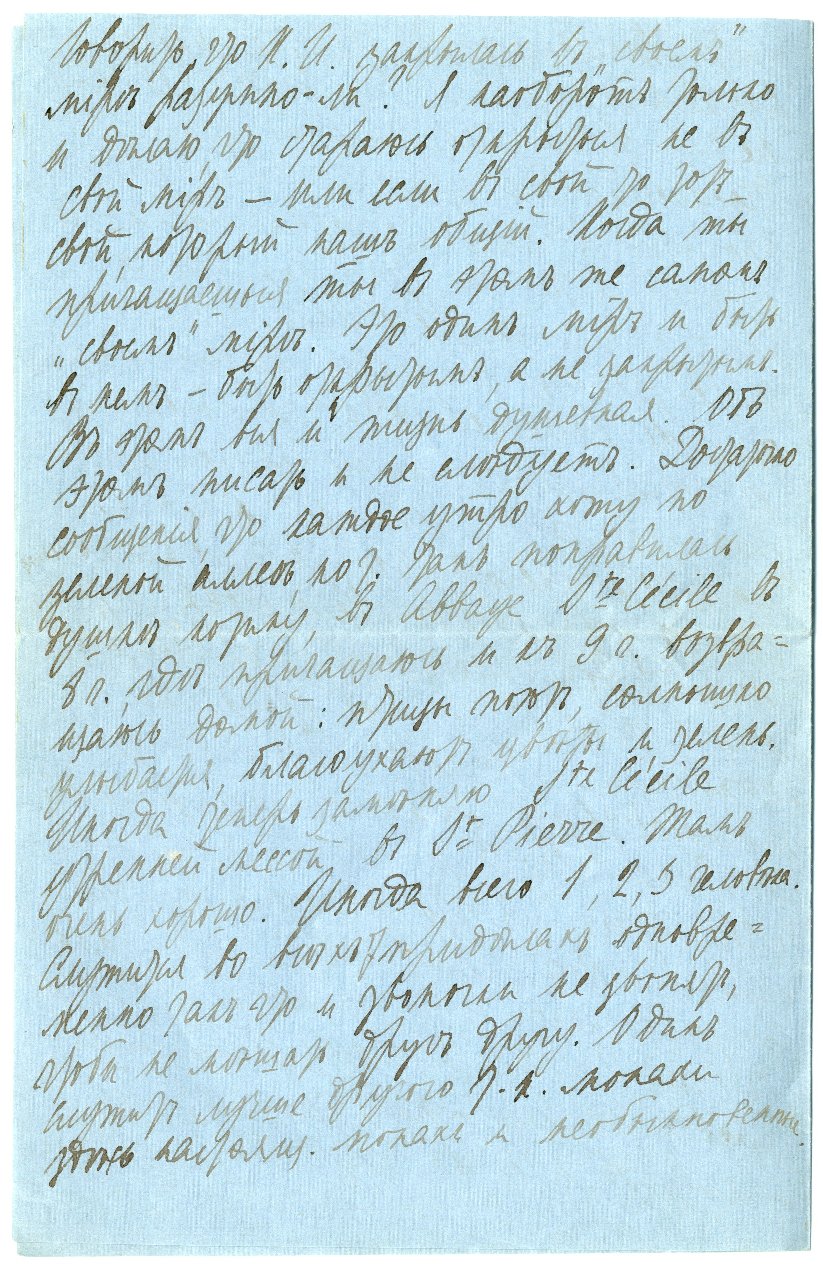 Говорит, что Н. И. закрылась въ „своемъ"
мірѣ
Я наоборотъ только
и дѣлаю, что стараюсь открыться не въ
свой міръ – или если въ свой то тотъ
свой, который нашъ общій. Когда ты
причащаешься ты въ этомъ же самомъ
„своемъ" мірѣ. Это одинъ міръ и быть
въ немъ – быть открытымъ, а не закрытымъ.
Въ этомъ вся и жизнь душевная. Объ
этомъ писать и не слѣдуетъ. Достаточно
сообщенія, что каждое утро хожу по
зеленой аллеѣ, кот. такъ понравилась
въ Abbaye Ste Cécile въ
8 ч., гдѣ причащаюсь и къ 9 ч. возвра=
щаюсь домой: птицы поютъ, солнышко
улыбается, благоухаютъ цвѣты и зелень.
Иногда теперь замѣняю Ste Cécile
утренней мессой въ St Pierre. Тамъ
очень хорошо. Иногда всего 1, 2, 3 человѣка.
Служится во всѣхъ 7 придѣлахъ одновре=
менно такъ что и звоночки не звонятъ,
чтобы не мѣшать другъ другу. Одинъ
служитъ лучше другого т. к. монахи
здѣсь настоящ. монахи и необыкновенные.